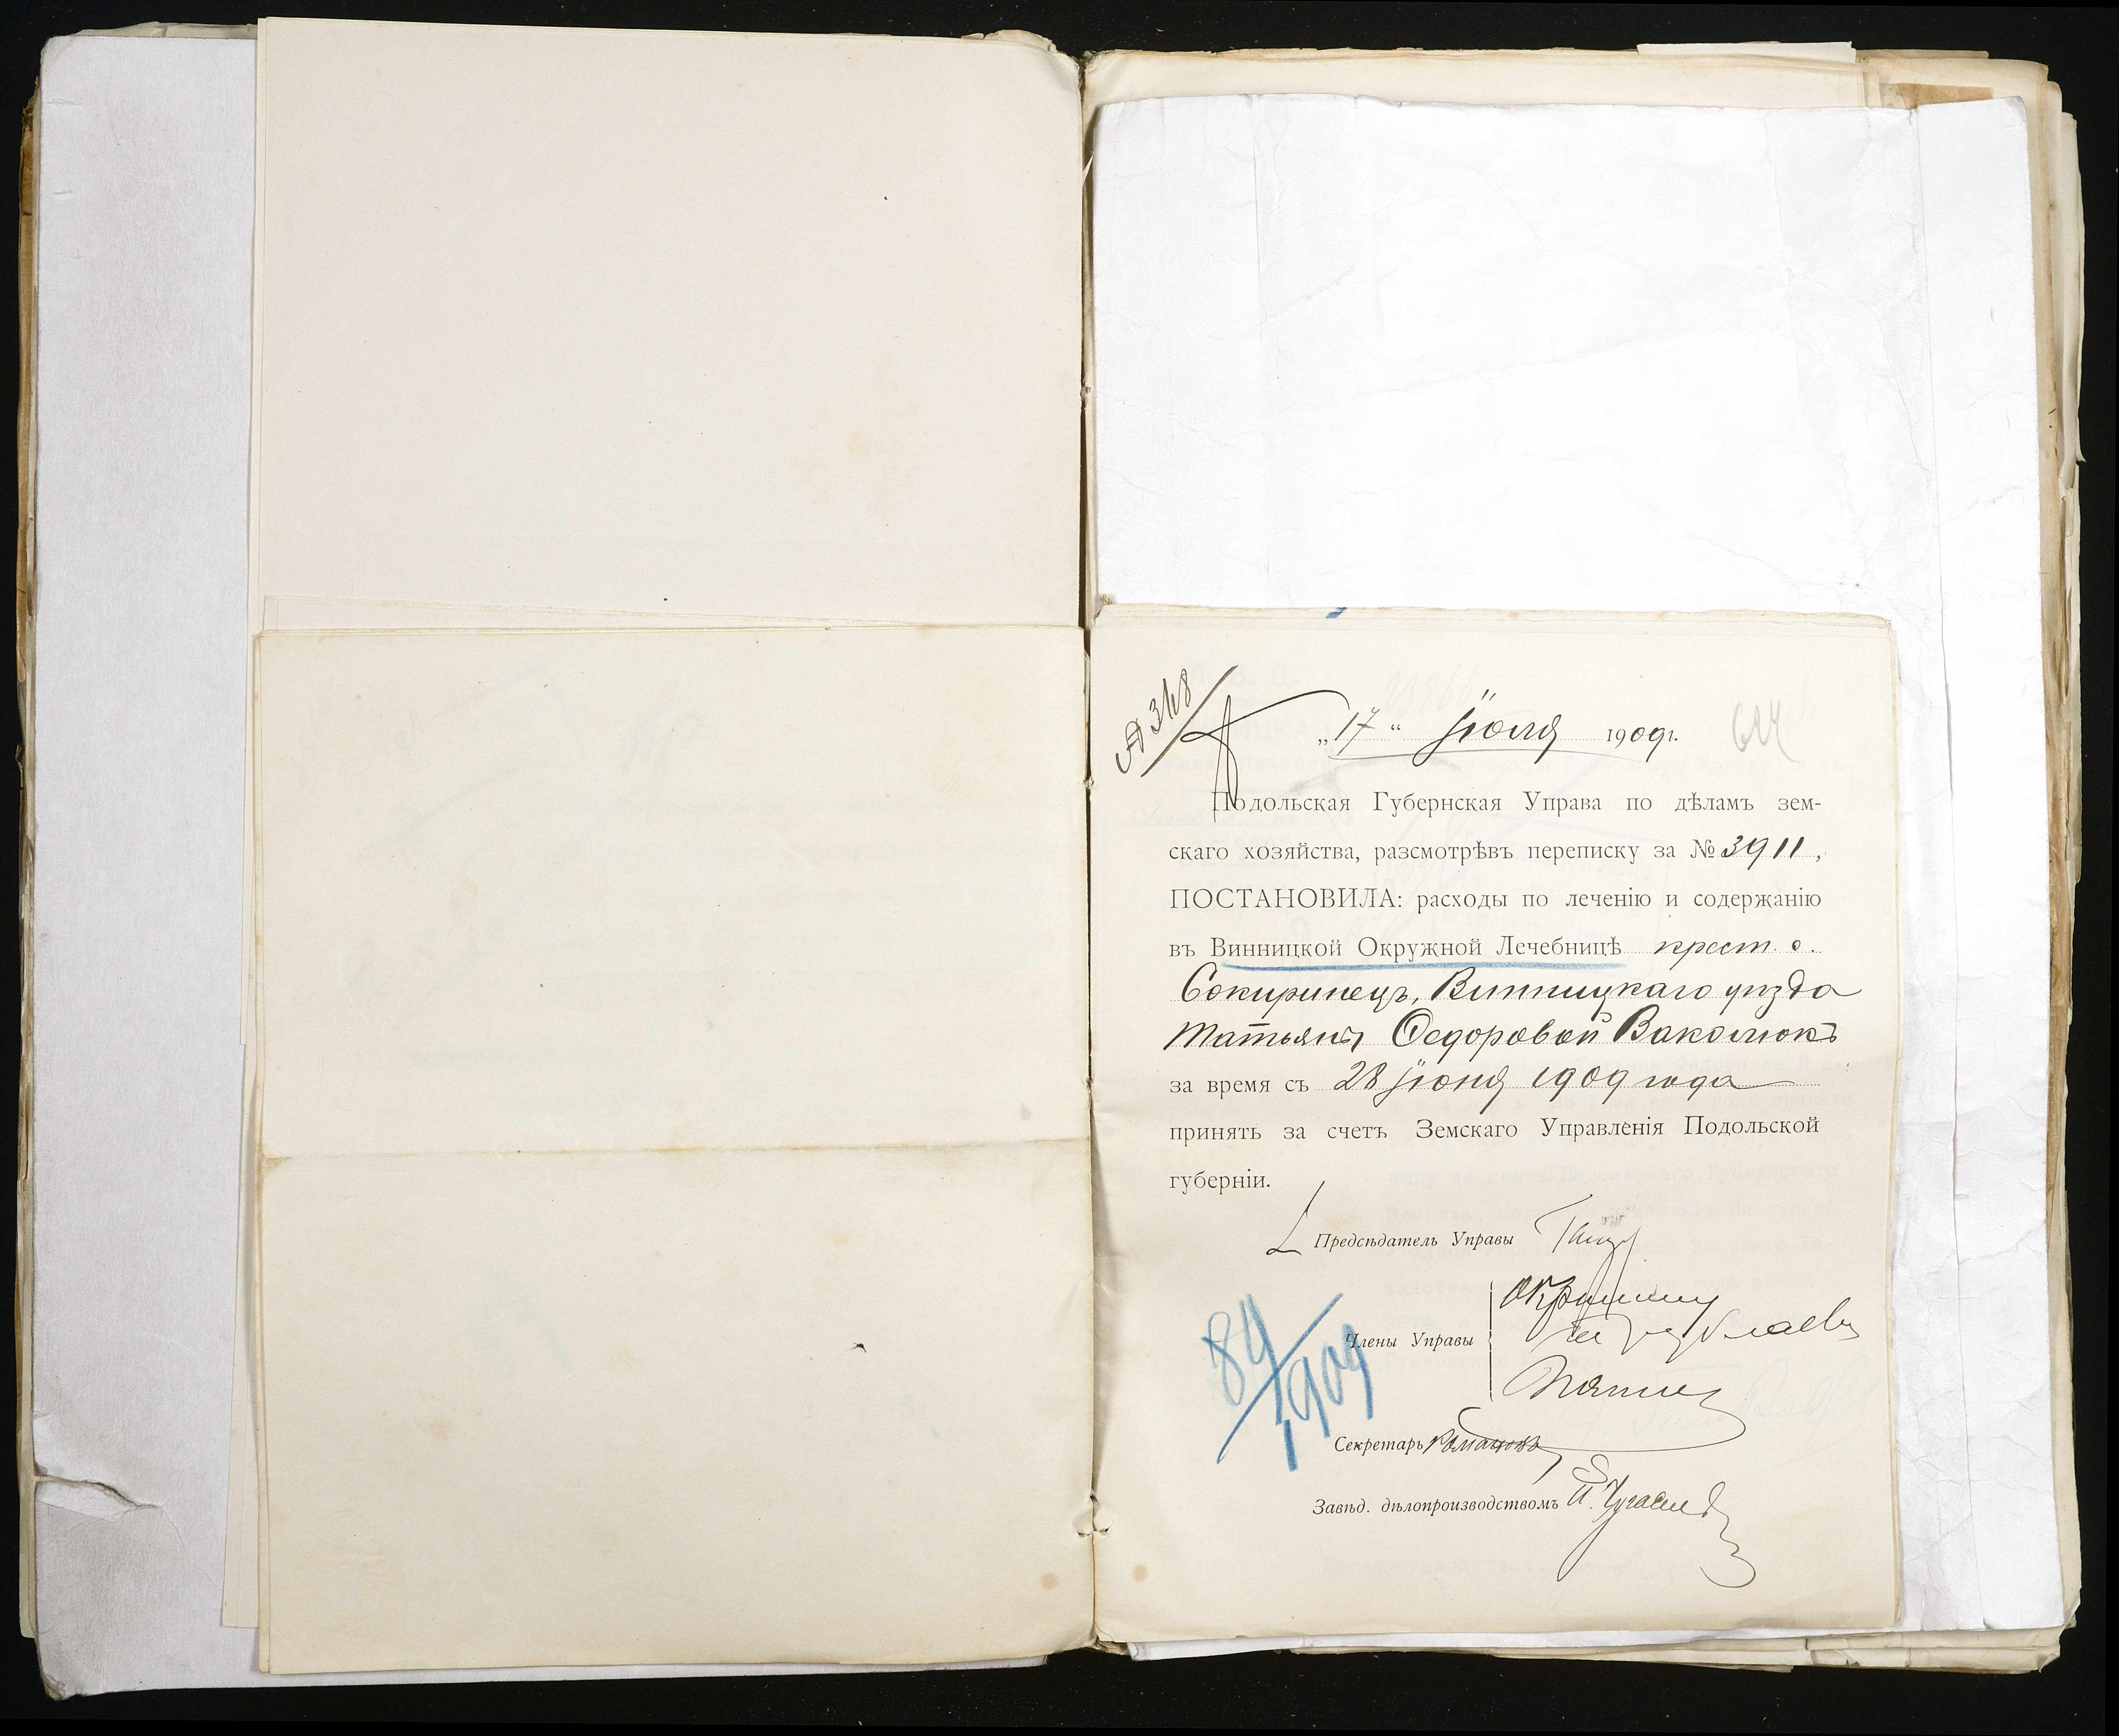 № 348
„17“ Июля 1909г.
Подольская Губернская Управа по дѣламъ зем-
скаго хозяйства, разсмотрѣвъ переписку за № 3911,
ПОСТАНОВИЛА: расходы по леченію и содержанію
въ Винницкой Окружной Лечебницѣ крест. с.
Сокиринецъ, Винницкаго уѣзда
Татьяны Ѳедоровой Ваколюкъ
за время съ 28 Іюня 1909 года
принять за счетъ Земскаго Управленія Подольской
губерніи.
Предсѣдатель Управы
Члены Управы
84/1909
Секретарь Романовъ
Завѣд. дѣлопроизводствомъ